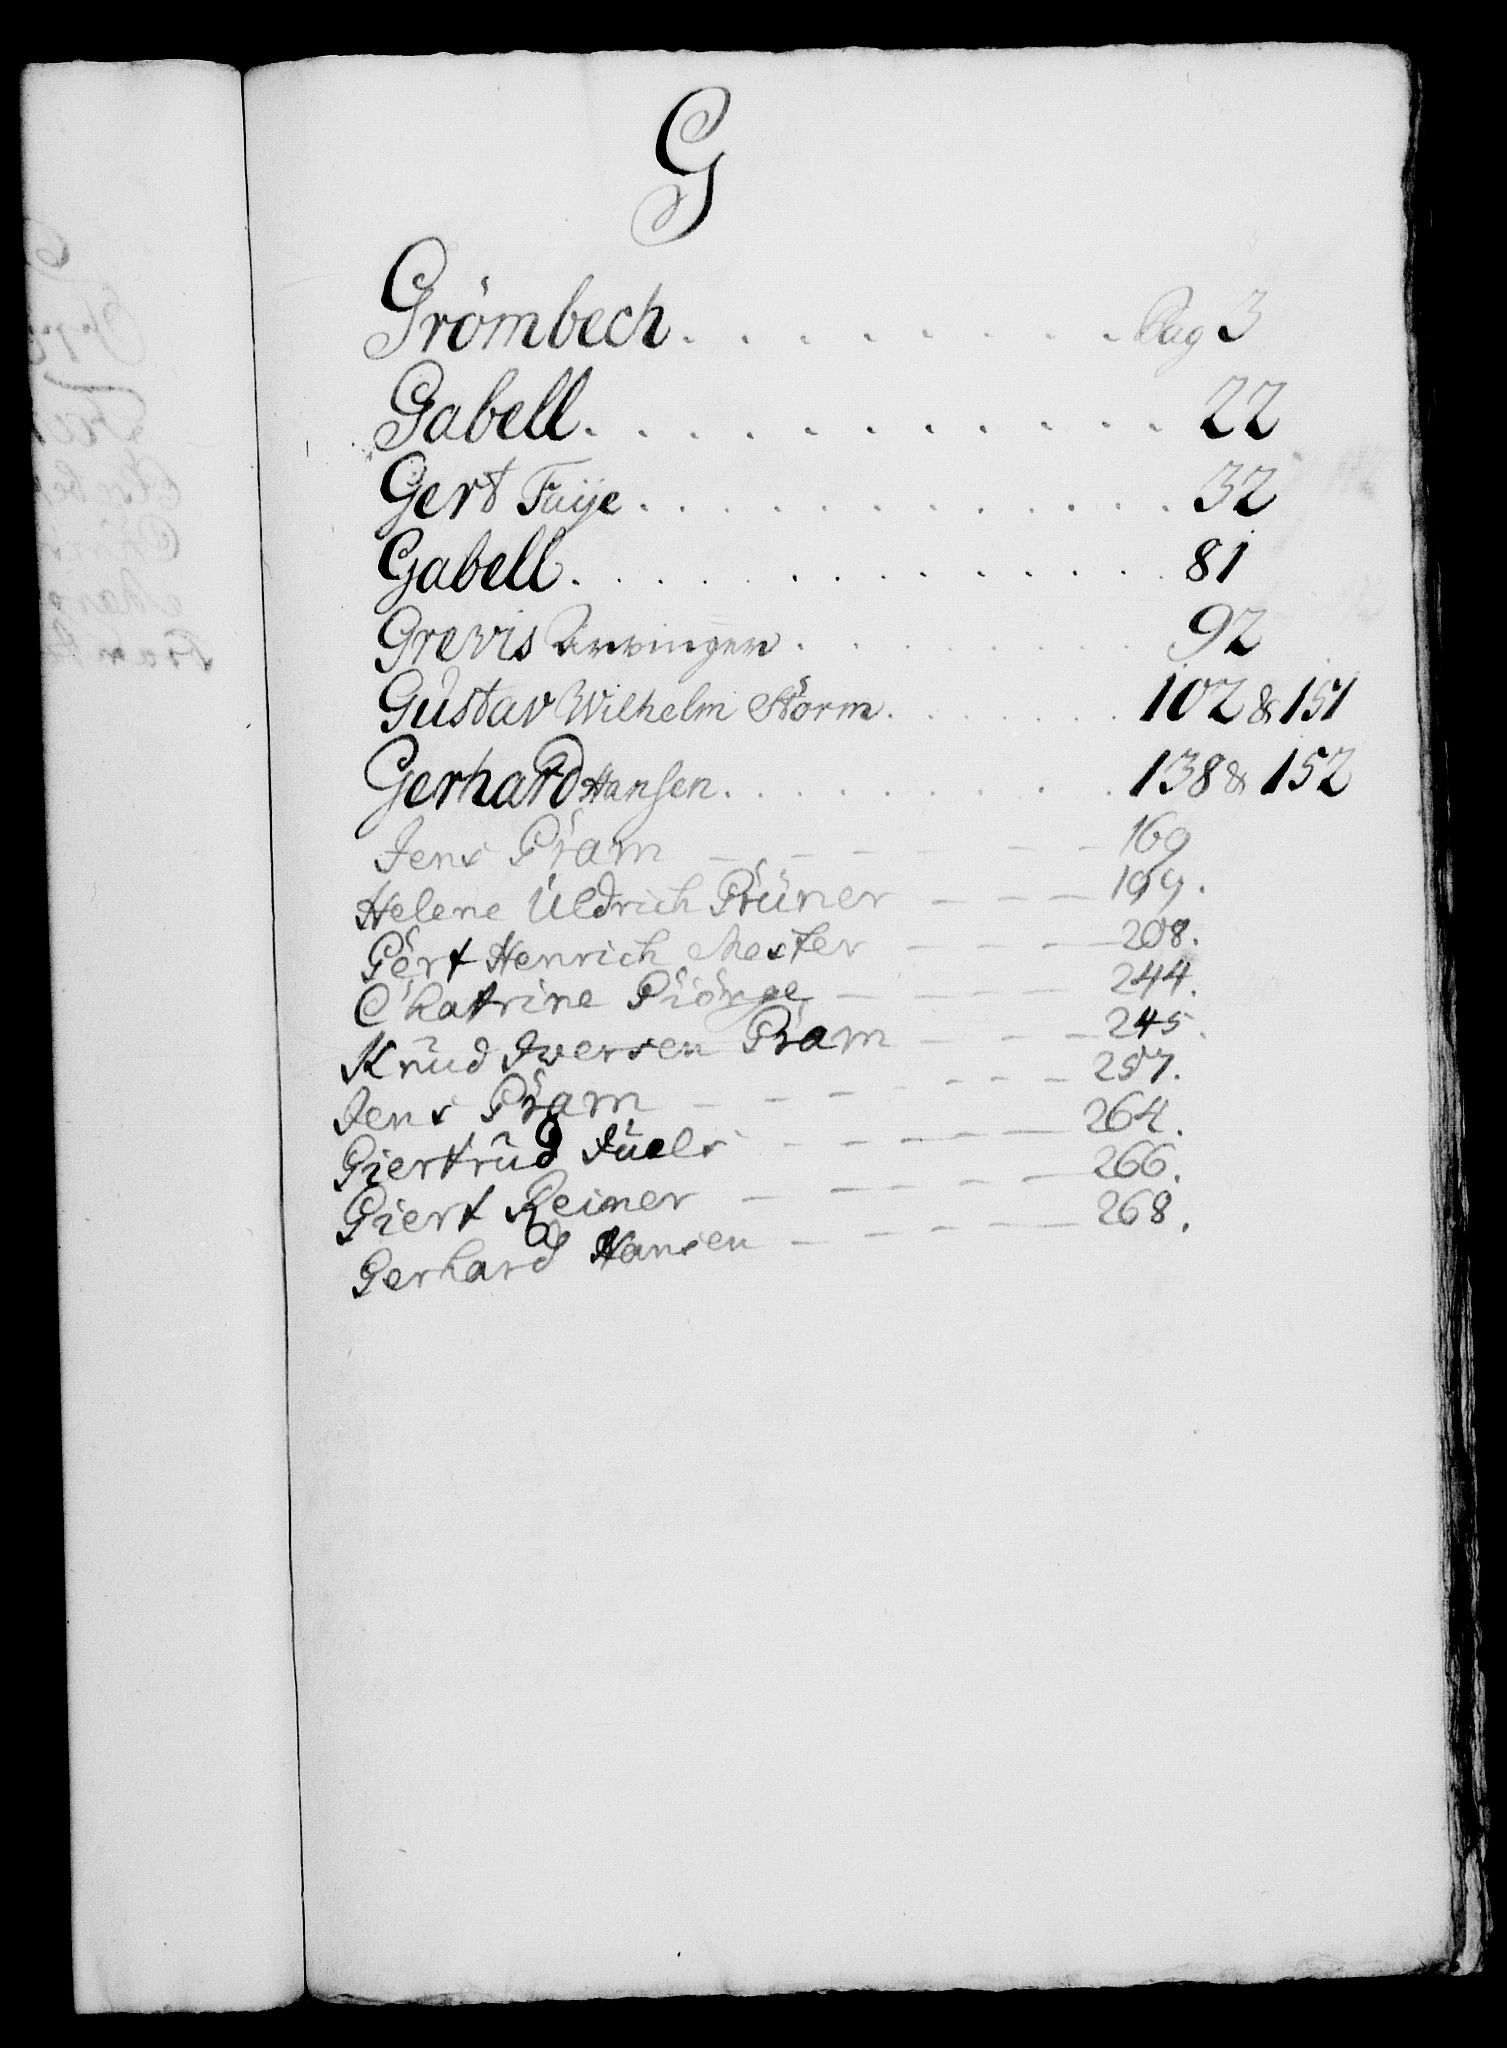 G
Grömbech . . . . . . . . Pag 3
Gabell . . . . . . . . . . . 22
Gert Faije . . . . . . . . . . 32
Gabell . . . . . . . . . . . 81
Grevis Arvinger . . . . . . . 92
Gustav Wilhelm Storm . . . . . 102 & 151
Gerhard Hansen . . . . . . . . 138 & 152
Jens Gram — — — — — — — 169
Helene Uldrich Grüner — — — 199.
Gert Henrich Mester — — — — 208.
Chatrine Giörge — — — — 244.
Knud Iversen Gram — — — 245.
Jens Gram — — — — — — — 257.
Giertrud Juels — — — — — 264.
Giert Reiner — — — — — — 266.
Gerhard Hansen — — — — — 268.